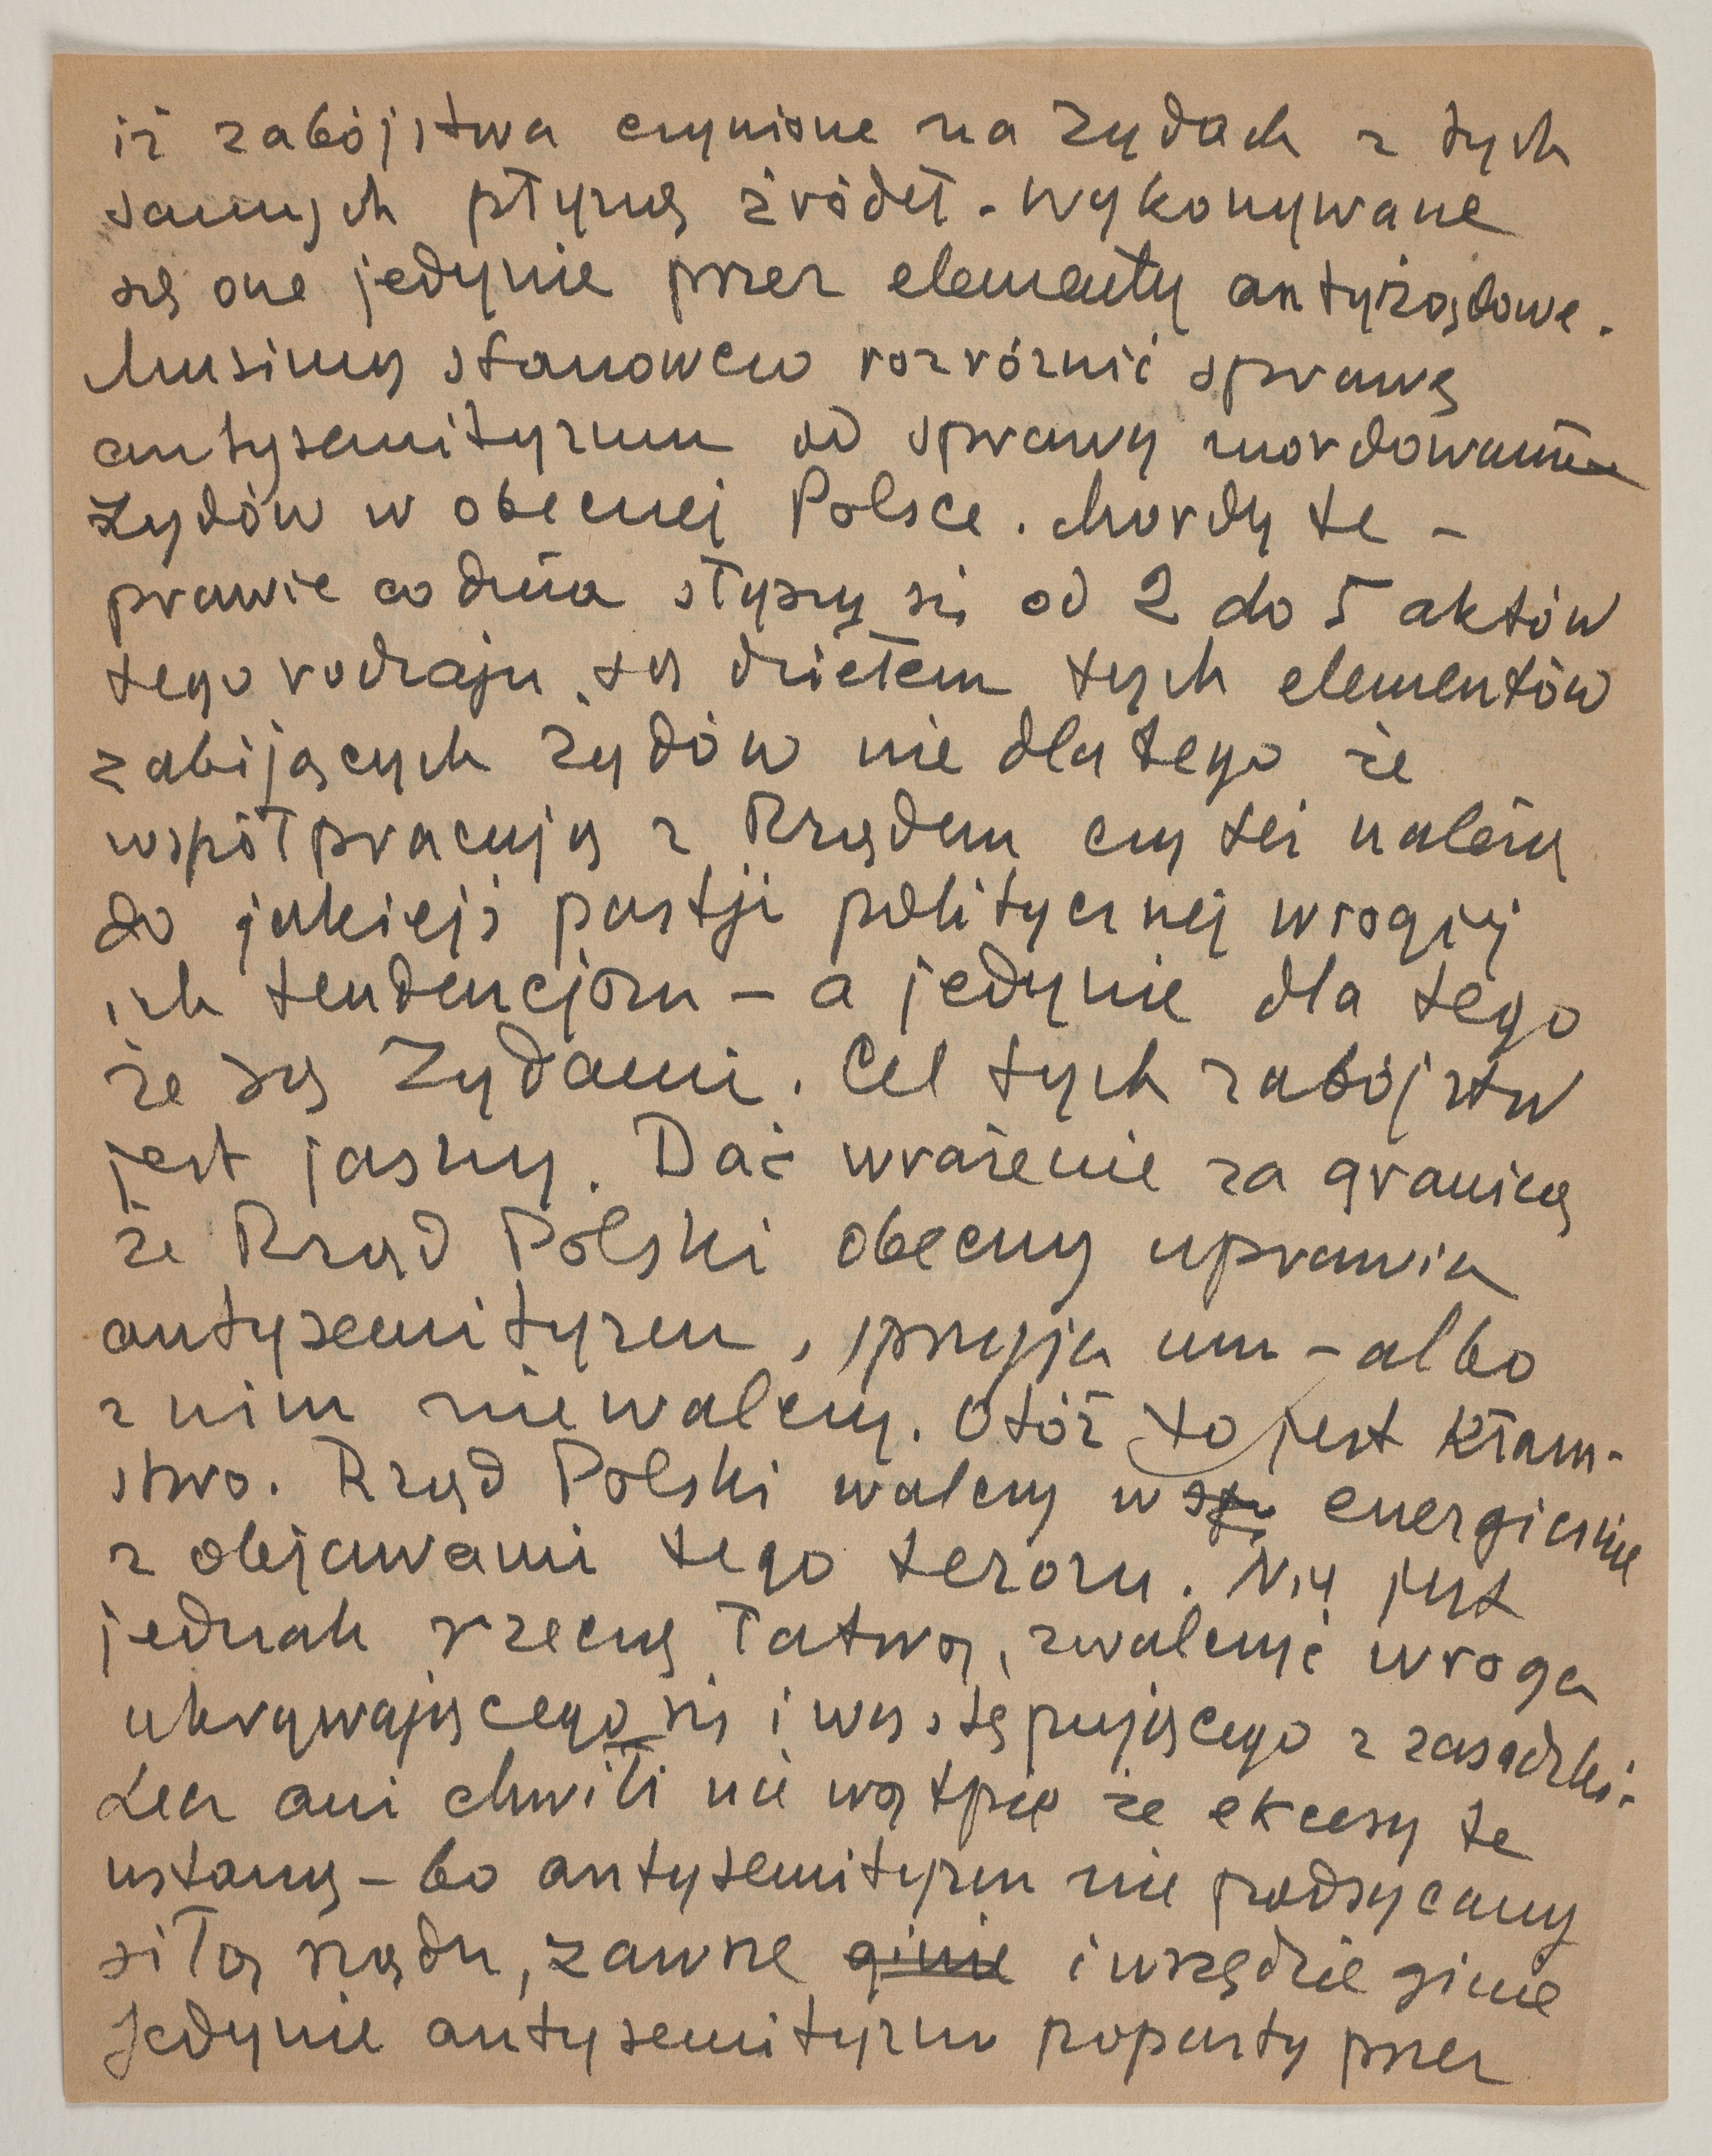 iż zabójstwa czynione na Żydach z tych
samych płyną źródeł. wykonywane
są one jedynie przez elementy antyrządowe.
Musimy stanowczo rozróżnić sprawę
antysemityzmu od sprawy mordowania
Żydów w obecnej Polsce. Mordy te –
prawie co dnia słyszy się od 2 do 5 aktów
tego rodzaju, są dziełem tych elementów
zabijających żydów nie dla tego że
współpracują z Rządem czy też należą
do jakiejś partji politycznej wrogiej
ich tendencjom – a jedynie dla tego
że są Żydami. Cel tych zabójstw
jest jasny. Dać wrażenie za granicą
że Rząd Polski obecny uprawia
antysemityzm, sprzyja mu – albo
z nim nie walczy. Otóż to jest kłam-
stwo. Rząd Polski walczy energicznie
z objawami tego teroru. Nie jest
jednak rzeczą łatwą, zwalczyć wroga
ukrywającego się i występującego z zasadzki.
Lecz ani chwili nie wątpię że ekcesy te
ustaną – bo antysemityzm nie podsycany
siłą rządu, zawsze ginie i wszędzie ginie
Jedynie antysemityzm poparty przez